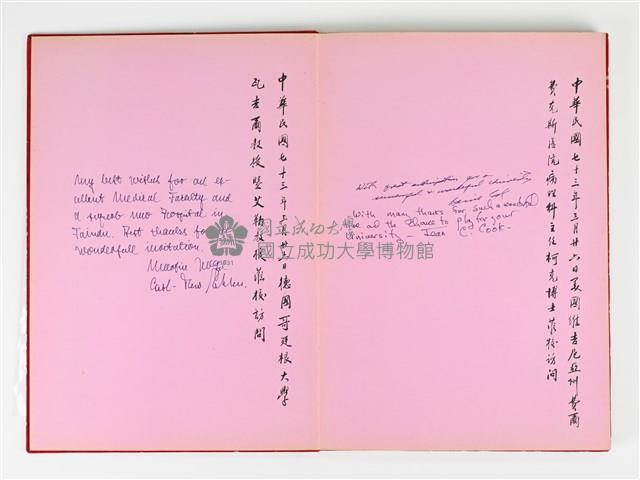 中華民國七十三年三月廿六日美國維吉尼亞州費爾
費克斯醫院病理科主任柯克博士蒞校訪問
With great admiration for a
successful & wonderful University
With many thanks for such a wonderful
ad the chance to play for your
University - Jean C. Cook -
中華民國七十三年三月廿日德國哥廷根大學
瓦吉爾教授暨艾勒教授蒞校訪問
My best wishes for an ex-
cellent Medical Faculty and
a superb new Hospital in
Tainan. Best thanks for
wonderfull invitation.
Carl-
國立成功大學
國立成功大學博物館
1931